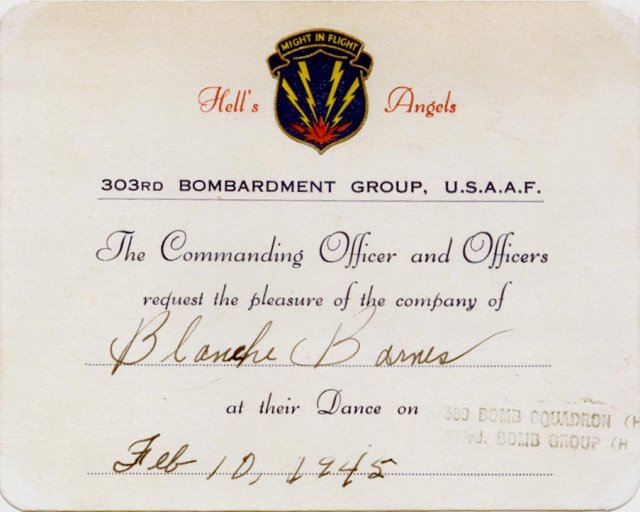 MIGHT IN FLIGHT
Hell's Angels
303RD BOMBARDMENT GROUP, U.S.A.A.F.
The Commanding Officer and Officers
request the pleasure of the company of
Blanche Barnes
at their Dance on
BOMB SQUADRON (H
BOMB GROUP (H
Feb 10, 1945